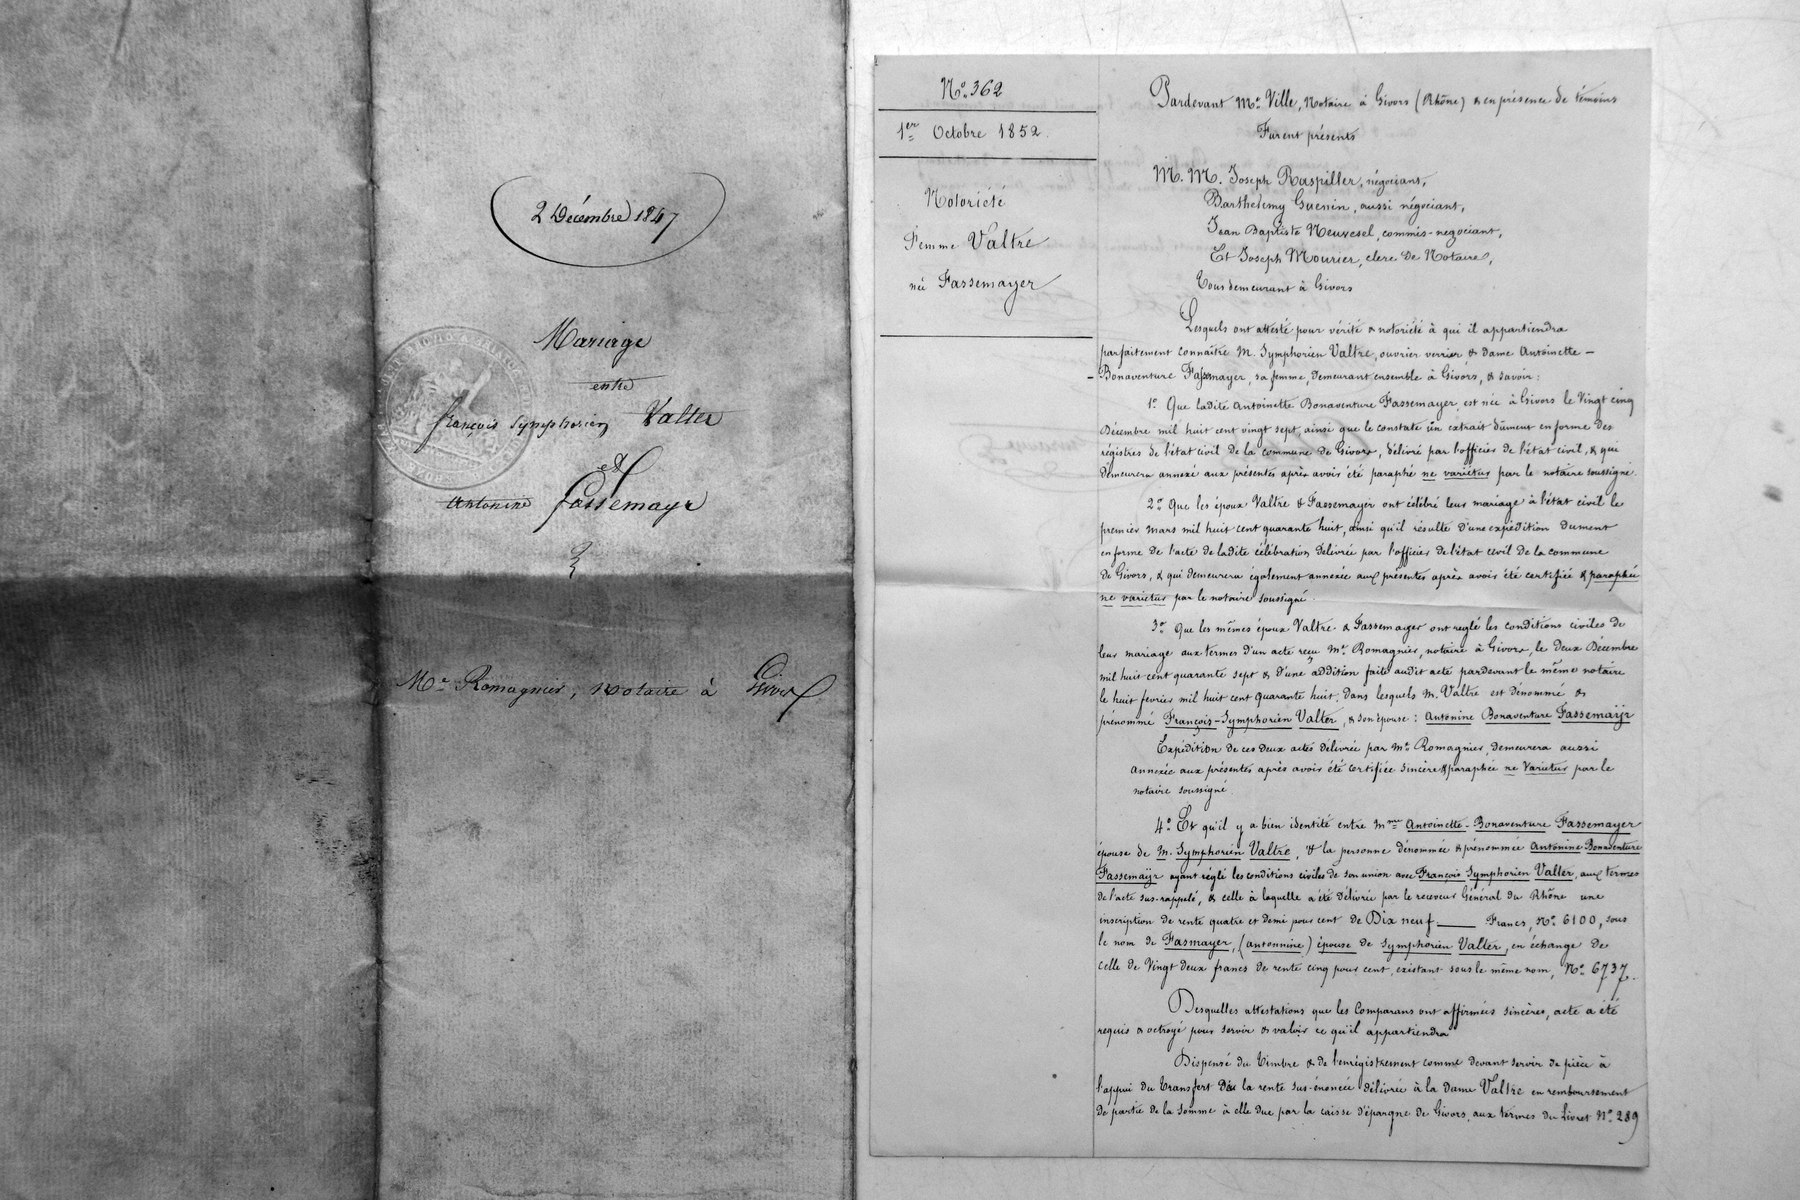 2 Décembre 1847
Mariage
entre
françois Symphorien Valter
et
Antonine Fassemayr
Me Romagnier, Notaire à Givors
No. 362
1er Octobre 1852.
Notoriété
Femme Valtre
née Fassemayer
Pardevant Me. Ville, Notaire à Givors (Rhône) & en présence de témoins
Furent présents
M. M. Joseph Raspiller, négociant,
Barthelemy Guenin, aussi négociant,
Jean Baptiste Neuvesel, commis-negociant,
Et Joseph Mourier, clerc de Notaire,
Tous demeurant à Givors
Lesquels ont attesté pour vérité & notoriété à qui il appartiendra
parfaitement connaître M. Symphorien Valtre, ouvrier verrier, & dame Antoinette-
Bonaventure Fassmayer, sa femme, demeurant ensemble à Givors, & savoir:
1o Que ladite Antoinette Bonaventure Fassemayer, est née à Givors le Vingt cinq
Décembre mil huit cent vingt sept ainsi que le constate un extrait dûment en forme des
régistres de l'état civil de la commune de Givors, délivré par l'officier de l'état civil, & qui
demeurera annexé aux présentes après avoir été paraphé ne varietur par le notaire soussigné.
2o Que les époux Valtre & Fassemayer ont célébré leur mariage à l'état civil le
premier mars mil huit cent quarante huit, ainsi qu'il résulte d'une expédition dument
en forme de l'acte de ladite célébration délivrée par l'officier de l'état civil de la commune
de Givors, & qui demeurera également annexée aux présentes après avoir été certifiée & paraphée
ne varietur par le notaire soussigné.
3o Que les mêmes époux Valtre & Fassemayer ont reglé les conditions civiles de
leur mariage aux termes d'un acte reçu Me. Romagnier, notaire à Givors, le deux Décembre
mil huit cent quarante sept & d'une addition faite audit acte pardevant le même notaire
le huit fevrier mil huit cent quarante huit, dans lesquels M. Valtre est dénommé &
prénommé François-Symphorien Valter, & son épouse: Antonine Bonaventure Fassemaÿr
Expédition de ces deux actes délivrée par Me. Romagnier, demeurera aussi
annexée aux présentes après avoir été certifiée sincère & paraphée ne Varietur par le
notaire soussigné.
4o Et qu'il y a bien identité entre Mme Antoinette-Bonaventure Fassemayer
épouse de M. Symphorien Valtre, & la personne dénommée & prénommée Antonine Bonaventure
Fassemaÿr ayant réglé les conditions civiles de son union avec François Symphorien Valter, aux termes
de l'acte sus-rappelé, & celle à laquelle a été délivrée par le receveur Général du Rhône une
inscription de rente quatre et demi pour cent de Dix neuf Francs, No. 6100, sous
le nom de Fasmayer, (antonnine) épouse de Symphorien Valter, en échange de
celle de Vingt deux francs de rente cinq pour cent, existant sous le même nom, No. 6737.
Desquelles attestations que les Comparans ont affirmées sincères, acte a été
requis & octroyé pour servir & valoir ce qu'il appartiendra
Dispensé du Timbre & de l'enrégistrement comme devant servir de pièce à
l'appui du Transfert de la rente sus-énoncée délivrée à la dame Valtre en remboursement
de partie de la somme à elle due par la caisse d'épargne de Givors, aux termes du Livret No. 289